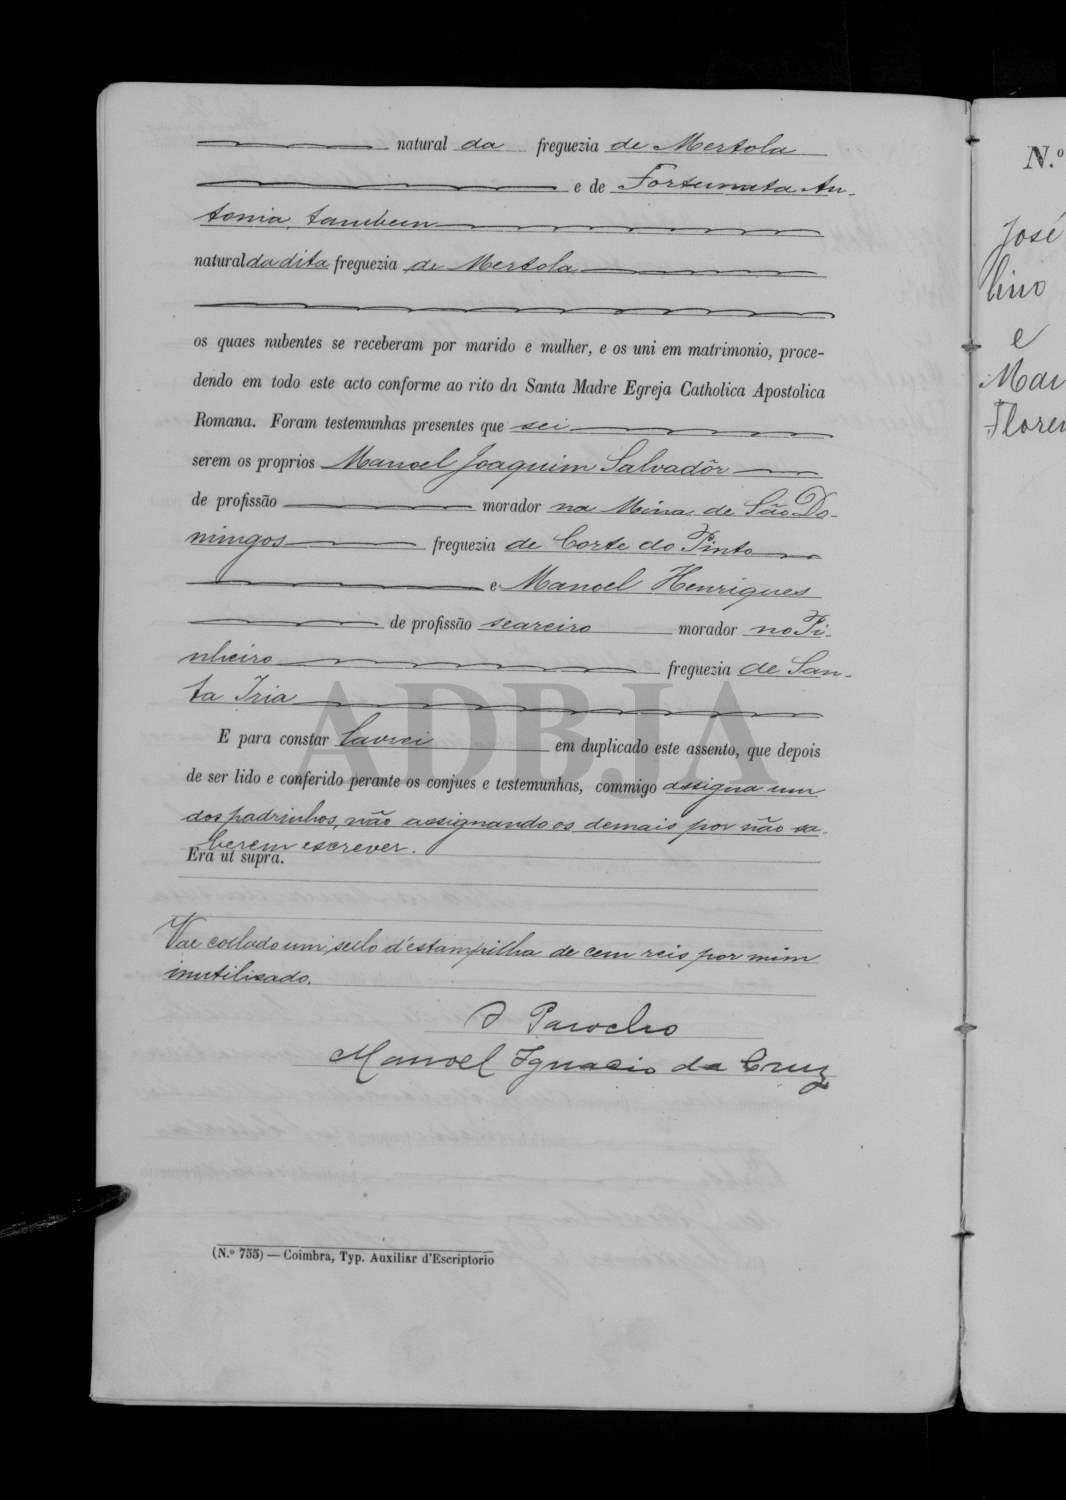 natural da freguezia de Mertola
e de Fortunata An-
tonia, tambem
natural da dita freguezia de Mertola
os quaes nubentes se receberam por marido e mulher, e os uni em matrimonio, proce-
dendo em todo este acto conforme ao rito da Santa Madre Egreja Catholica Apostolica
Romana. Foram testemunhas presentes que sei
serem os proprios Manoel Joaquim Salvadôr
de profissão morador na Mina de São Do-
mingos freguezia de Corte do Pinto
e Manoel Henriques
de profissão seareiro morador no Pi-
nheiro freguezia de San-
ta Iria
E para constar lavrei em duplicado este assento, que depois
de ser lido e conferido perante os conjues e testemunhas, commigo assigna um
dos padrinhos, não assignando os demais por não sa-
berem escrever.
Era ut supra.
Vae collado um sello d'estampilha de cem reis por mim
inutilisado.
O Parocho
Manoel Ignacio da Cruz
(N.º 755) — Coimbra, Typ. Auxiliar d'Escriptorio
ADBJA
N.º
José
lino
e
Mar
Floren